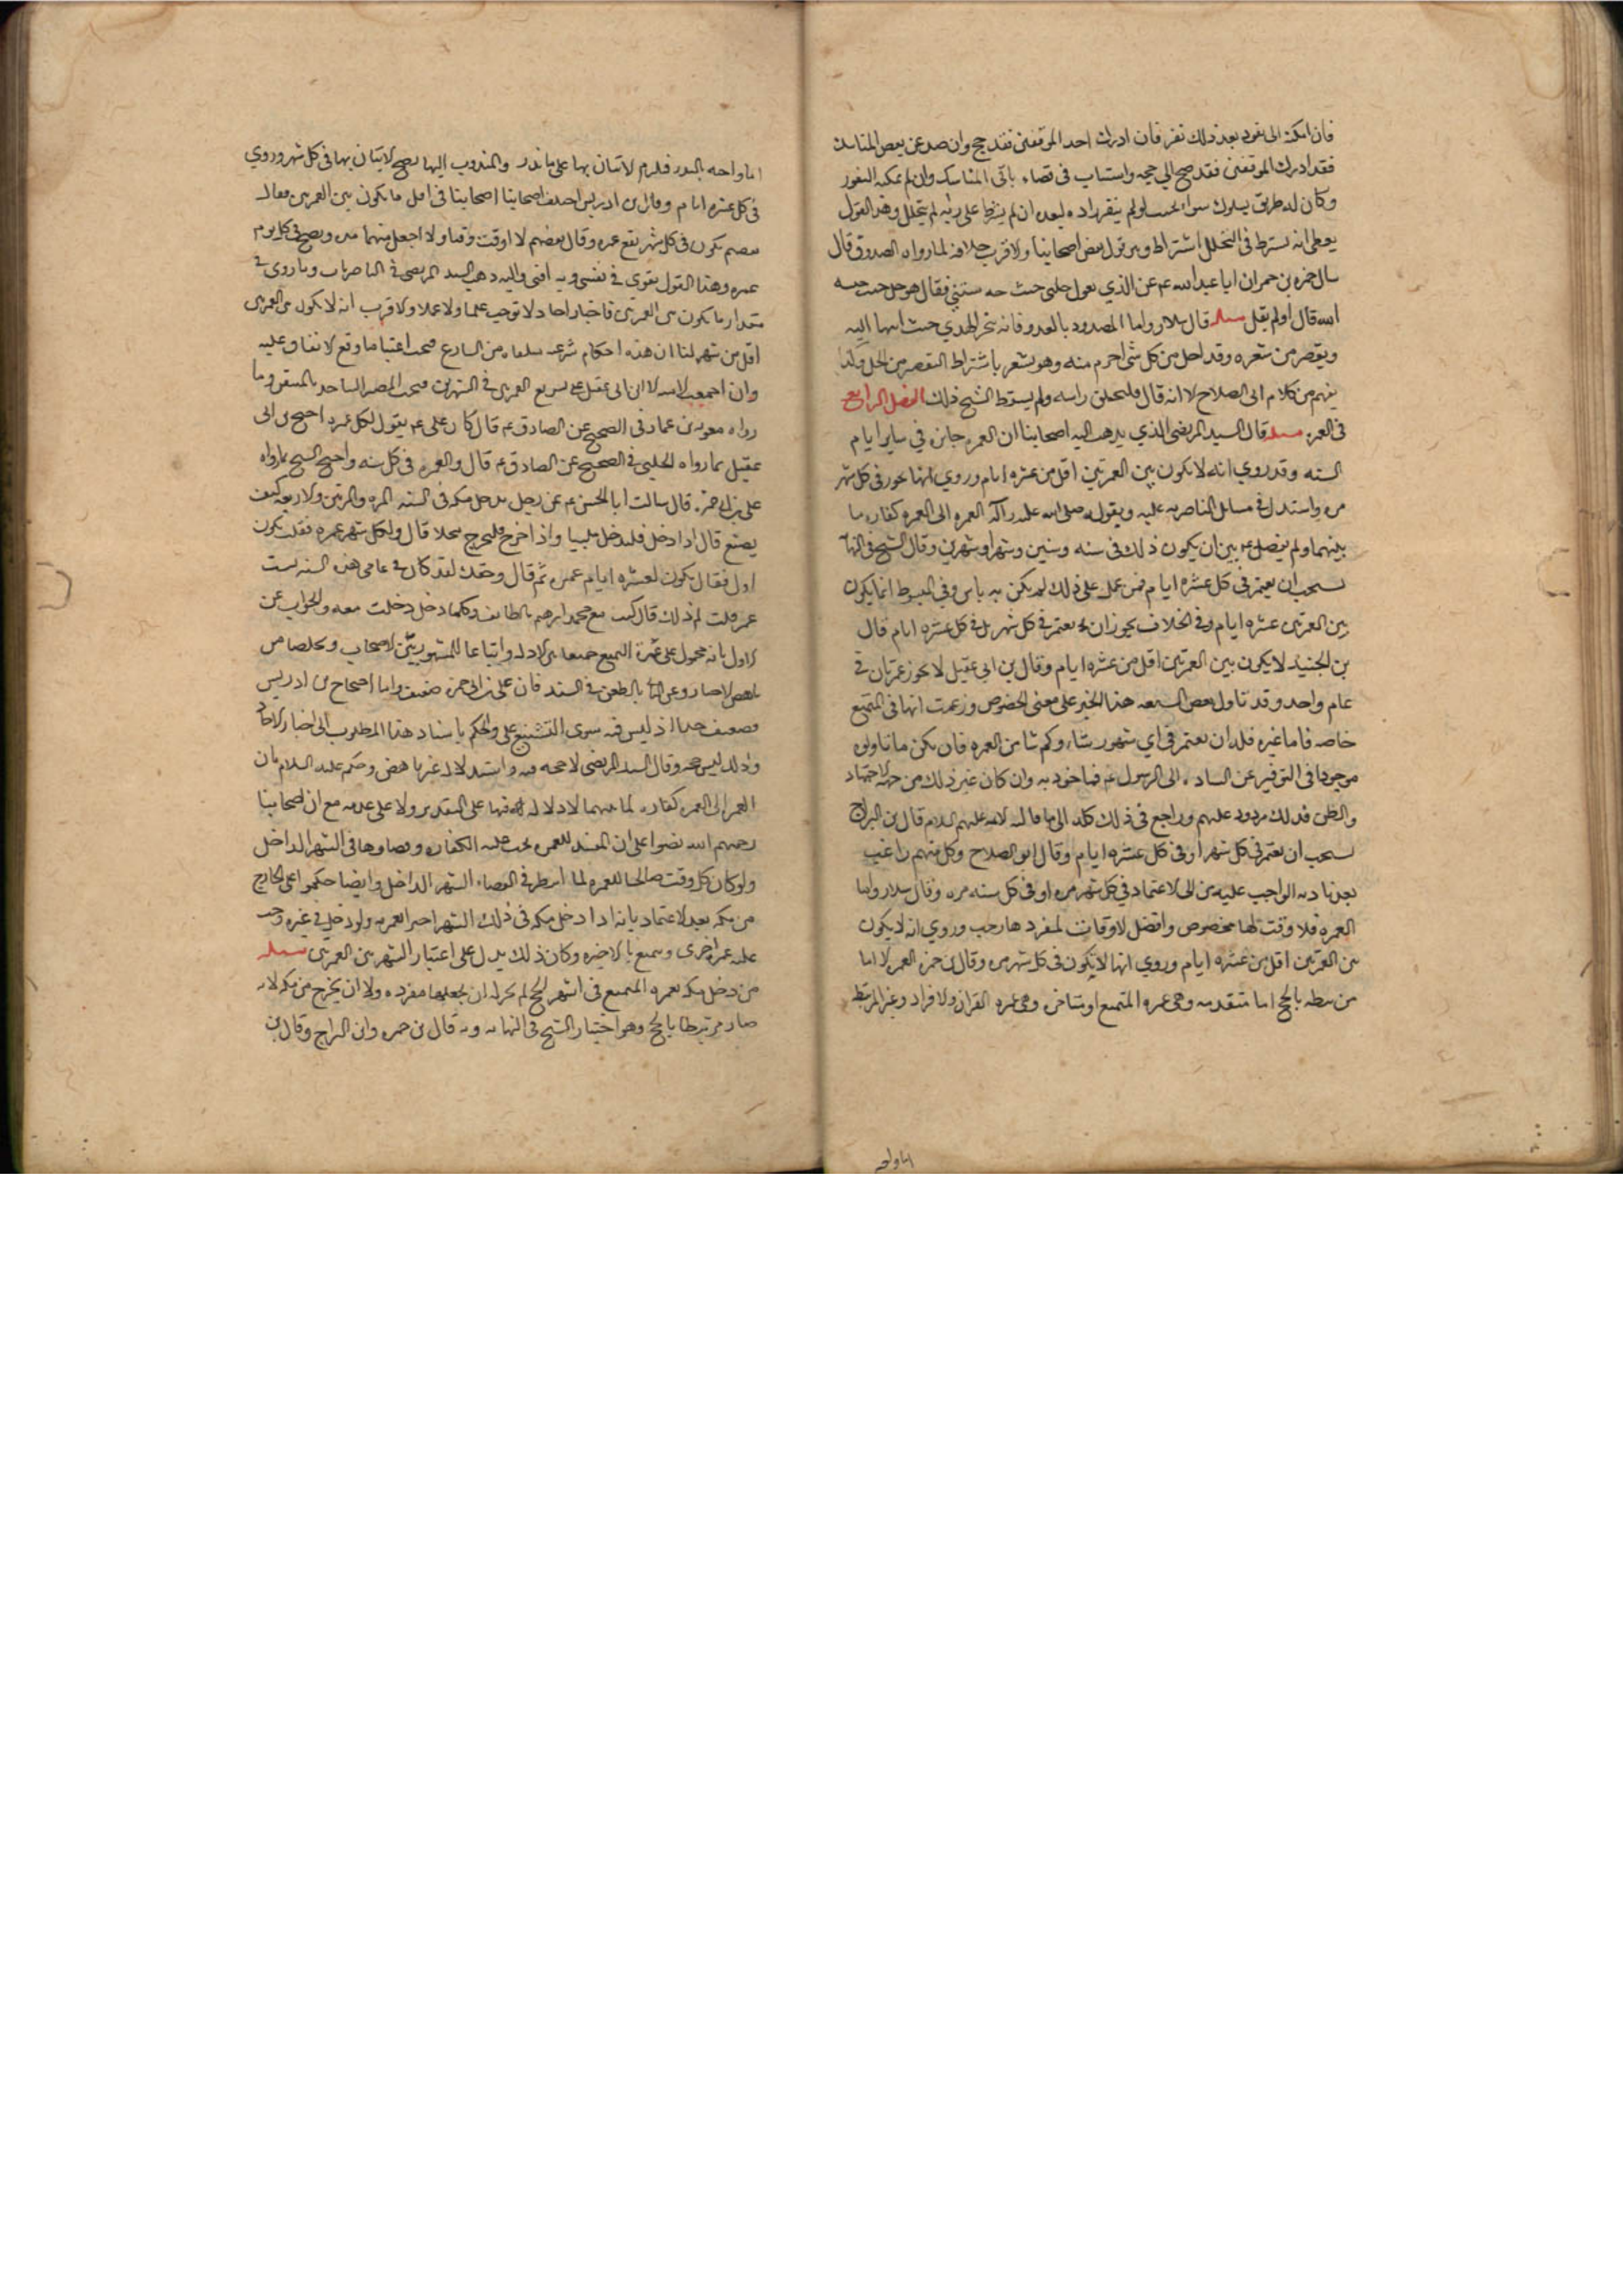 فان امكنه النفوذ بعد ذلك نفر فان ادرك احد الموقفين فقد حج وان صد عن بعض المناسك
فقد ادرك الموقفين فقد صح الى حجه واستناب فى قضاء باقى المناسك وان لم يمكنه النفوذ
وكان له طريق يسلوك سواء لحبس او لم ينفد زاده لبعده ان لم يشترط على ربه لم يتحلل وهذا القول
يعطى انه يشترط فى التحلل اشتراط وهو قول بعض اصحابنا والاقرب خلافه لما رواه الصدوق قال
سال حمزه بن حمران ابا عبد الله ع عن الذى يقول حلنى حيث حبستنى فقال هو حل حيث حبسه
الله قال اولم يقل مسله قال سلار واما المصدود بالعدو فانه ينحر الهدي حيث انتهى اليه
ويقصر من شعره وقد احل من كل شى احرم منه وهو يشعر باشتراط التقصير من الحل وكذا
يفهم من كلام ابى الصلاح لانه قال فليحلق راسه ولم يشترط الشيخ ذلك الفصل الرابع
فى العمره مسله قال السيد المرتضى الذي يذهب اليه اصحابنا ان العمره جايزه في ساير ايام
السنه وقد روي انه لا يكون بين العمرتين اقل من عشره ايام وروي انها تجوز فى كل شهر
مره واستدل فى مسايل الناصريه عليه وبقوله صلى الله عليه واله العمره الى العمره كفاره ما
بينهما ولم يفصل ع بين ان يكون ذلك فى سنه وسنين وشهر او شهرين وقال الشيخ فى النهايه
يستحب ان يعتمر فى كل عشره ايام فمن عمل على ذلك لم يكن به باس وفى المبسوط انما يكون
بين العمرتين عشره ايام وفى الخلاف يجوز ان يعتمر فى كل شهر بل فى كل عشره ايام قال
بن الجنيد لا يكون بين العمرتين اقل من عشره ايام وقال بن ابى عقيل لا يجوز عمرتان فى
عام واحد وقد تاول بعض الشيعه هذا الخبر على معنى الخصوص وزعمت انها فى التمتع
خاصه فاما غيره فله ان يعتمر فى اي شهور شاء وكم شا من العمره فان يكن ما تاولوه
موجودا فى التوقيف عن الساده الى الرسول ع فماخوذ به وان كان غير ذلك من جهه الاجتهاد
والظن فذلك مردود عليهم وراجع فى ذلك كله الى ما قالته الائمه عليهم السلام قال بن البراج
يستحب ان يعتمر فى كل شهر او فى كل عشره ايام وقال ابو الصلاح وكل منهم راغب
بعد تاديه الواجب عليه من الى الاعتمار فى كل شهر مره او فى كل سنه مره وقال سلار واما
العمره فلا وقت لها مخصوص وافضل الاوقات لمفردها رجب وروي انه لا يكون
بين العمرتين اقل من عشره ايام وروي انها لا يكون فى كل شهر مره وقال بن حمزه العمره اما
مرتبطه بالحج اما متقدمه وهى عمره المتمتع او متاخره وهى عمره القران والافراد وغير المرتبط
اما واجبه
اما واجبه بالنذر فيلزم الاتيان بها على ما نذر والمندوب اليها يصح الاتيان بها فى كل شهر وروي
فى كل عشره ايام وقال بن ادريس اختلف اصحابنا فى اقل ما يكون بين العمرتين فقال
بعضهم يكون فى كل شهر يقع عمره وقال بعضهم لا اوقت وقتا ولا اجعل بينهما مده ويصح فى كل يوم
عمره وهذا القول يقوي فى نفسى وبه افتى واليه ذهب السيد المرتضى فى الناصريات وما روي فى
مقدار ما يكون بين العمرتين فاخبار احاد لا توجب علما ولا عملا والاقرب انه لا يكون بين العمرتين
اقل من شهر لنا ان هذه احكام شرعيه متلقاه من الشارع فيجب اعتبار ما وقع الاتفاق عليه
وان اجمعت الامه الا ابن ابى عقيل على تسويغ العمرتين فى الشهرين فيجب المصير اليه اخذ بالمتيقن وما
رواه معويه بن عمار فى الصحيح عن الصادق ع قال كان على ع يقول لكل شهر عمره احتج بن ابى
عقيل بما رواه الحلبى فى الصحيح عن الصادق ع قال والعمره فى كل سنه واحتج الشيخ بما رواه
على بن ابى حمزه قال سالت ابا الحسن ع عن رجل يدخل مكه فى السنه المره والمرتين والاربعه كيف
يصنع قال اذا دخل فليدخل ملبيا واذا خرج فليخرج محلا قال ولكل شهر عمره فقلت يكون
اقل فقال يكون لعشره ايام عمره ثم قال وحقك لقد كان فى عامى هذه السنه ست
عمر قلت لم ذلك قال كنت مع محمد بن ابرهيم بالطايف وكلما دخل دخلت معه والجواب عن
الاول بانه محمول على عمره التمتع جمعا بين الادله واتباعا للمشهور بين الاصحاب وتخلصا من
تناقض الاخبار وعن الثانى بالطعن فى السند فان على بن ابى حمزه ضعيف واما احتجاج بن ادريس
فضعيف جدا اذ ليس فيه سوى التشنيع على والحكم باسناد هذا المطلوب الى اخبار الاحاد
وذلك ليس حجه وقال السيد المرتضى لا حجه فيه واستدلاله غير ناهض وحكم عليه السلام بان
العمره الى العمره كفاره لما بينهما لا دلاله فيها على التقدير ولا على عدمه مع ان اصحابنا
رحمهم الله نصوا على ان المفسد للعمره يجب عليه الكفاره وقضاوها فى الشهر الداخل
ولو كان كل وقت صالحا للعمره لما انتظر فى القضاء الشهر الداخل وايضا حكموا على الخارج
من مكه بعد الاعتمار بانه اذا دخل مكه فى ذلك الشهر اجزا العمره ولو دخل فى غيره وجب
عليه عمره اخرى ويتمتع بالاخيره وكان ذلك يدل على اعتبار الشهر بين العمرتين مسله
من دخل مكه بعمره المتمتع فى اشهر الحج لم يجز له ان يجعلها مفرده ولا ان يخرج من مكه لانه
صار مرتبطا بالحج وهو اختيار الشيخ فى النهايه وبه قال بن حمزه وابن البراج وقال بن